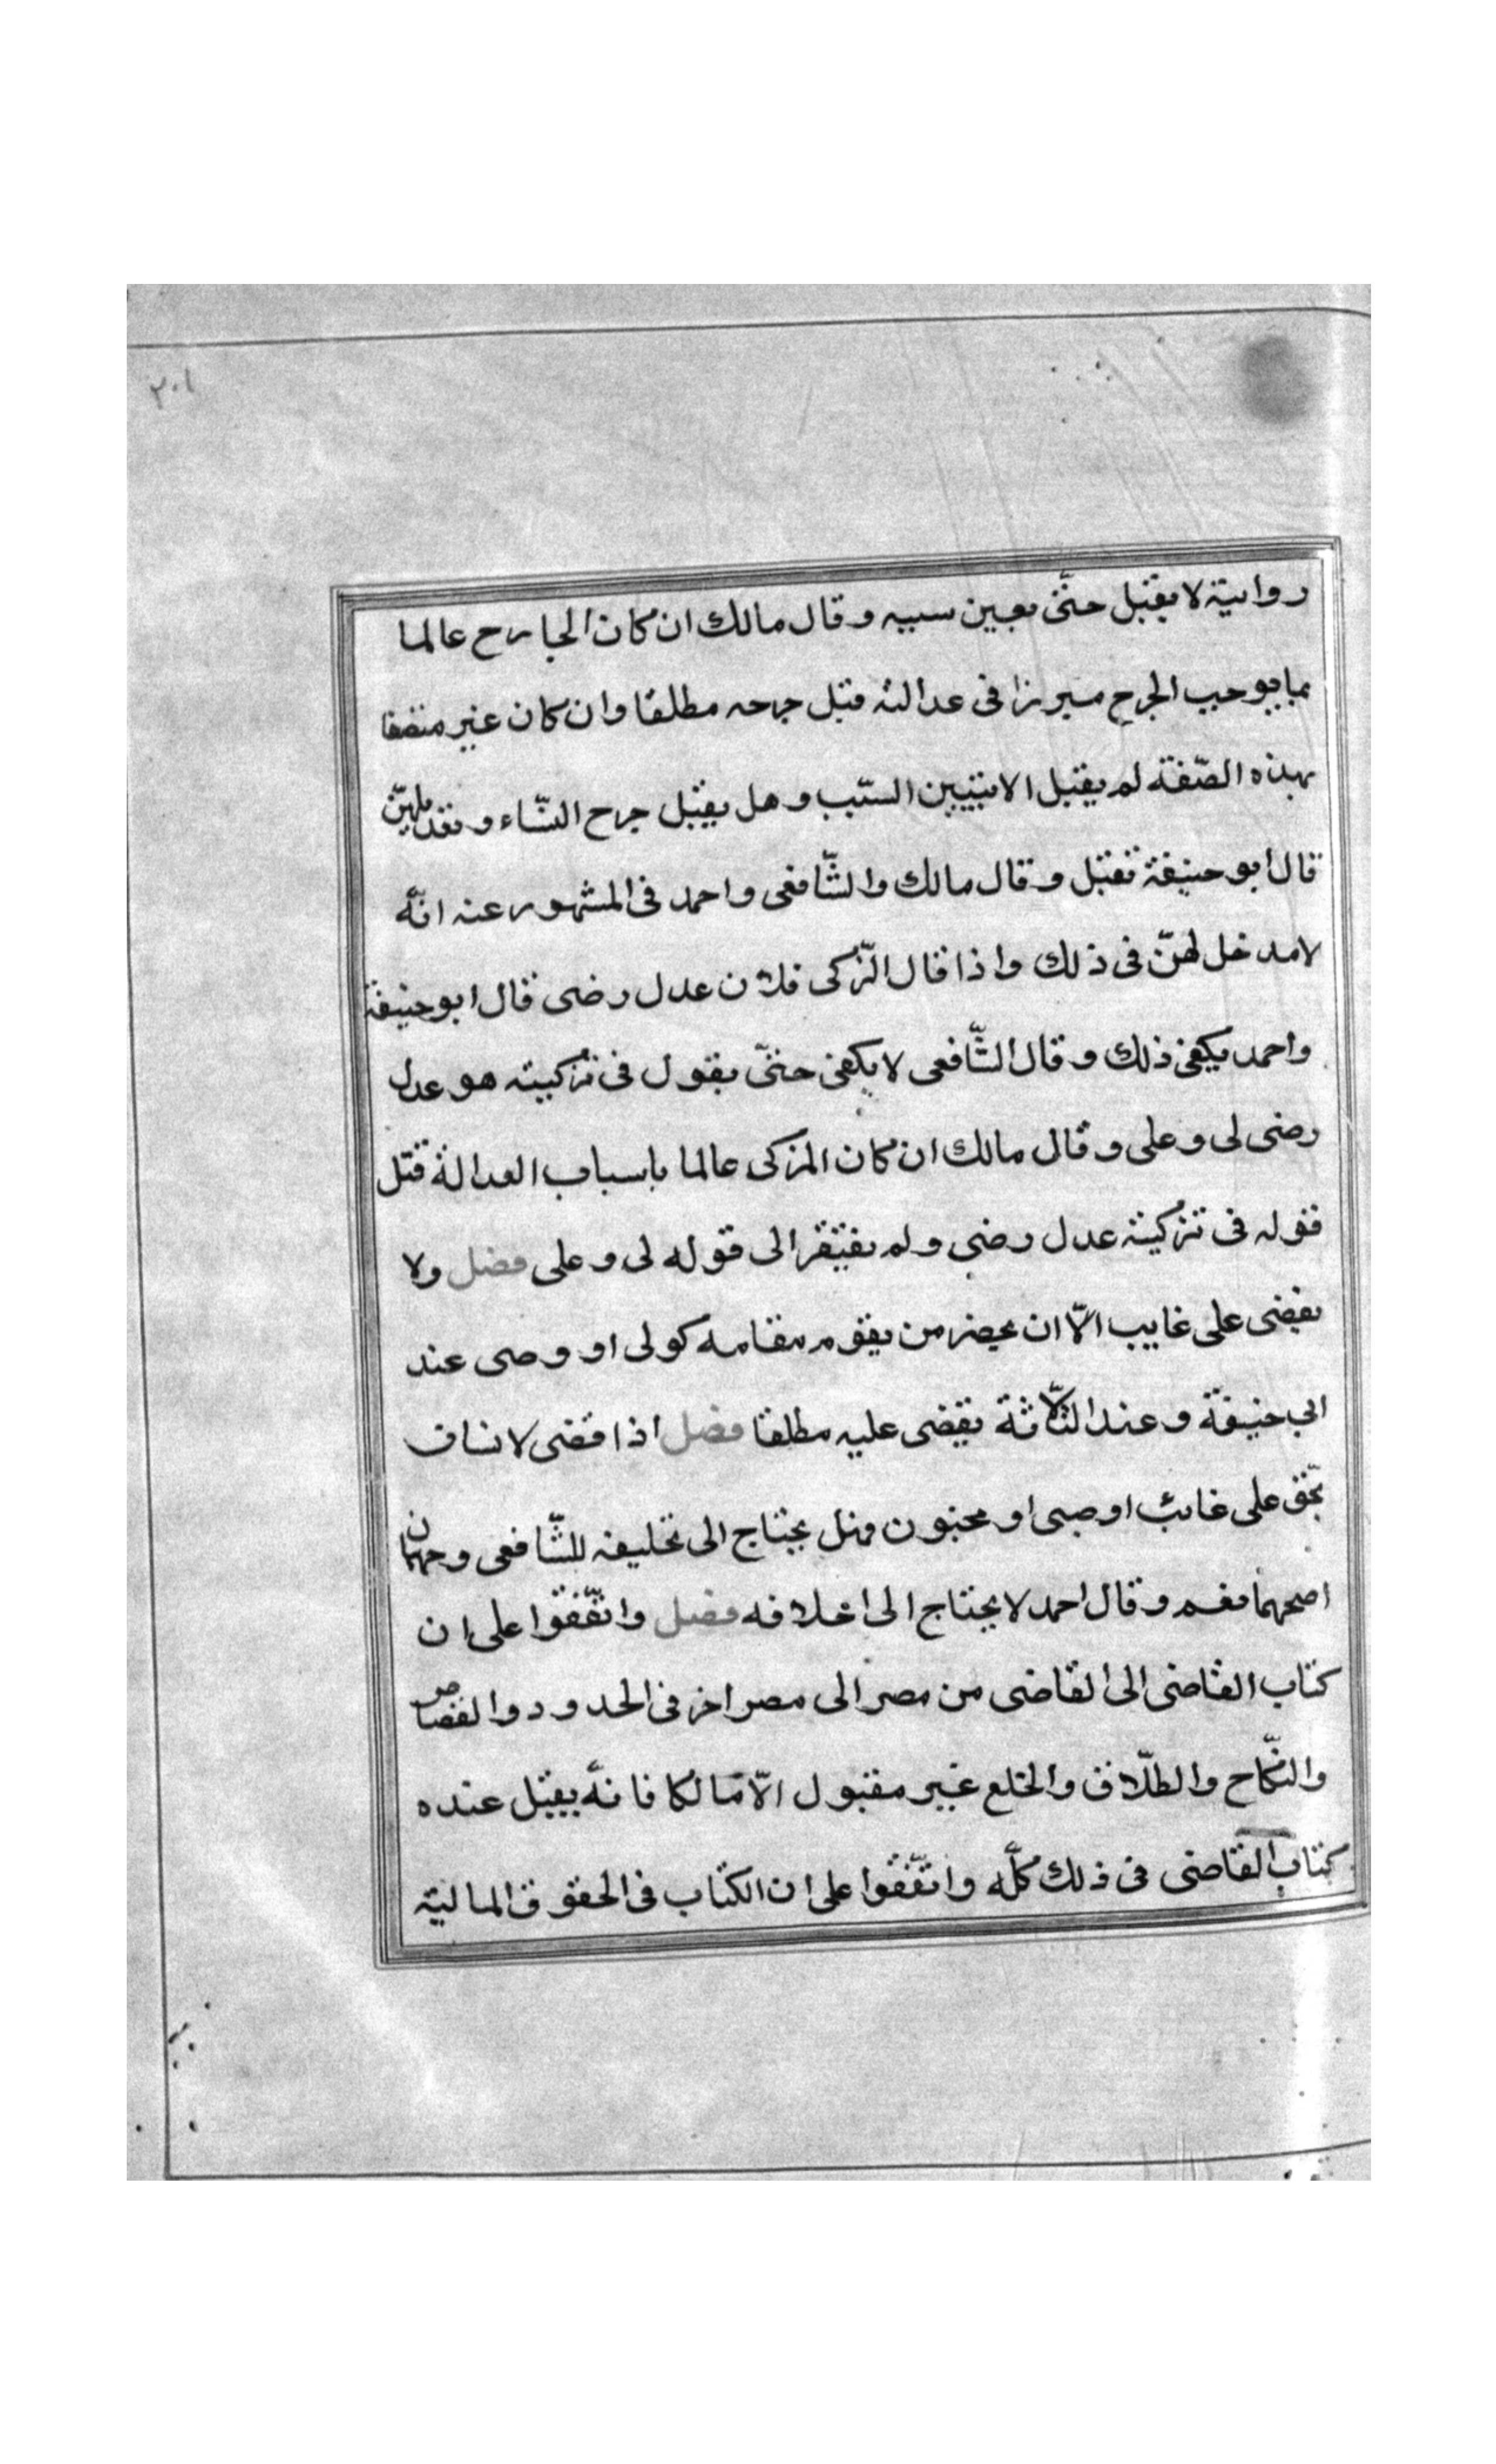 ٢٠١
رواية لا يقبل حتّى يعين سببه وقال مالك ان كان الجارح عالما
بما يوجب الجرح مبرزا فى عدالته قبل جرحه مطلقا وان كان غير متصفا
بهذه الصّفة لم يقبل الا بتبيين السّبب وهل يقبل جرح النّساء وتعديلهنّ
قال ابو حنيفة تقبل وقال مالك والشّافعى واحمد فى المشهور عنه انّه
لا مدخل لهنّ فى ذلك واذا قال المزكى فلان عدل رضى قال ابو حنيفة
واحمد يكفى ذلك وقال الشّافعى لا يكفى حتّى يقول فى تزكيته هو عدل
رضى لى وعلى وقال مالك ان كان المزكى عالما باسباب العدالة قبل
قوله فى تزكيته عدل رضى ولم يفتقر الى قوله لى وعلى فصل ولا
يقضى على غايب الّا ان يحضر من يقوم مقامه كولى او وصى عند
ابى حنيفة وعند الثّلاثة يقضى عليه مطلقا فصل اذا قضى لانسان
بحّق على غائب او صبى او مجنون فهل يحتاج الى تحليفه للشّافعى وجهان
اصحهما نعم وقال احمد لا يحتاج الى احلافه فصل واتّفقوا على ان
كتاب القاضى الى القاضى من مصر الى مصر اخر فى الحدود والقصاص
والنّكاح والطلّاق والخلع غير مقبول الّا مالكا فانّه يقبل عنده
كتاب القاضى فى ذلك كلّه واتّفقوا على ان الكتاب فى الحقوق الماليّة